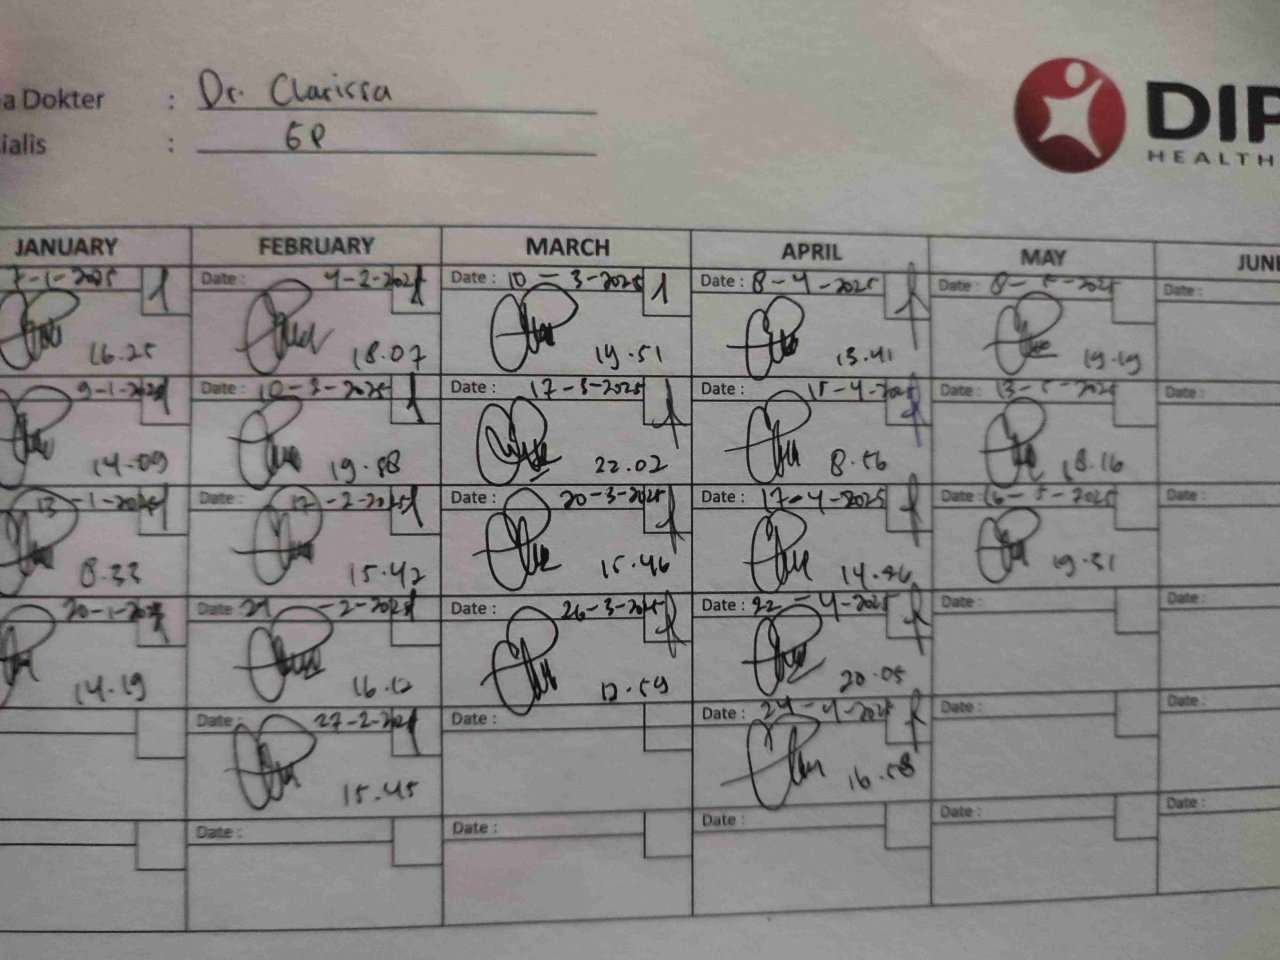 a Dokter : Dr. Clarissa
ialis : GP
DIP
HEALTH
JANUARY FEBRUARY MARCH APRIL MAY JUNE
7-1-2025 Date : 4-2-2025 Date : 10-3-2025 Date : 8-4-2025 Date : 8-5-2025 Date :
16.25 18.07 19.51 13.41 19.19
9-1-2025 Date : 10-3-2025 Date : 17-3-2025 Date : 15-4-2025 Date : 13-5-2025 Date :
14.09 19.58 22.02 8.56 18.16
13-1-2025 Date : 17-2-2025 Date : 20-3-2025 Date : 17-4-2025 Date : 16-5-2025 Date :
8.33 15.42 15.46 14.46 19.31
20-1-2025 Date : -2-2025 Date : 26-3-2025 Date : 22-4-2025 Date : Date :
14.19 16.12 12.59 20.05
Date : 27-2-2025 Date : Date : 24-4-2025 Date : Date :
15.45 16.58
Date : Date : Date : Date : Date :